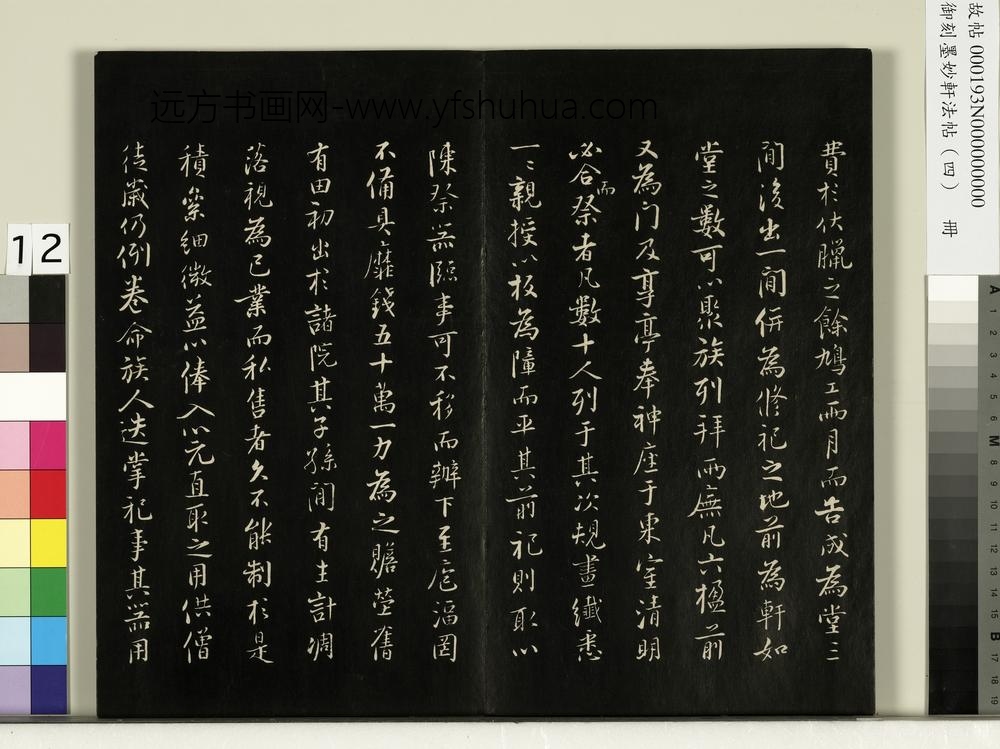 故帖 000193N000000000
御刻墨妙軒法帖（四） 冊
远方书画网-www.yfshuhua.com
費於伏臘之餘鳩工兩月而告成為堂三
間後出一間併為修祀之地前為軒如
堂之數可以聚族列拜兩廡凡六楹前
又為门及享亭奉神座于東室清明
必合而祭者凡數十人列于其次規畫纖悉
一〻親授以板為障而平其前祀則取以
陳祭器臨事可不移而辦下至庖湢罔
不備具靡錢五十萬一力為之贍塋舊
有田初出於諸院其子孫間有生計凋
落視為己業而私售者久不能制於是
積絫細微益以俸入以元直取之用供僧
徒歲仍例卷命族人迭掌祀事其器用
12
A 1 2 3 4 5 6 M 8 9 10 11 12 13 14 15 B 17 18 19